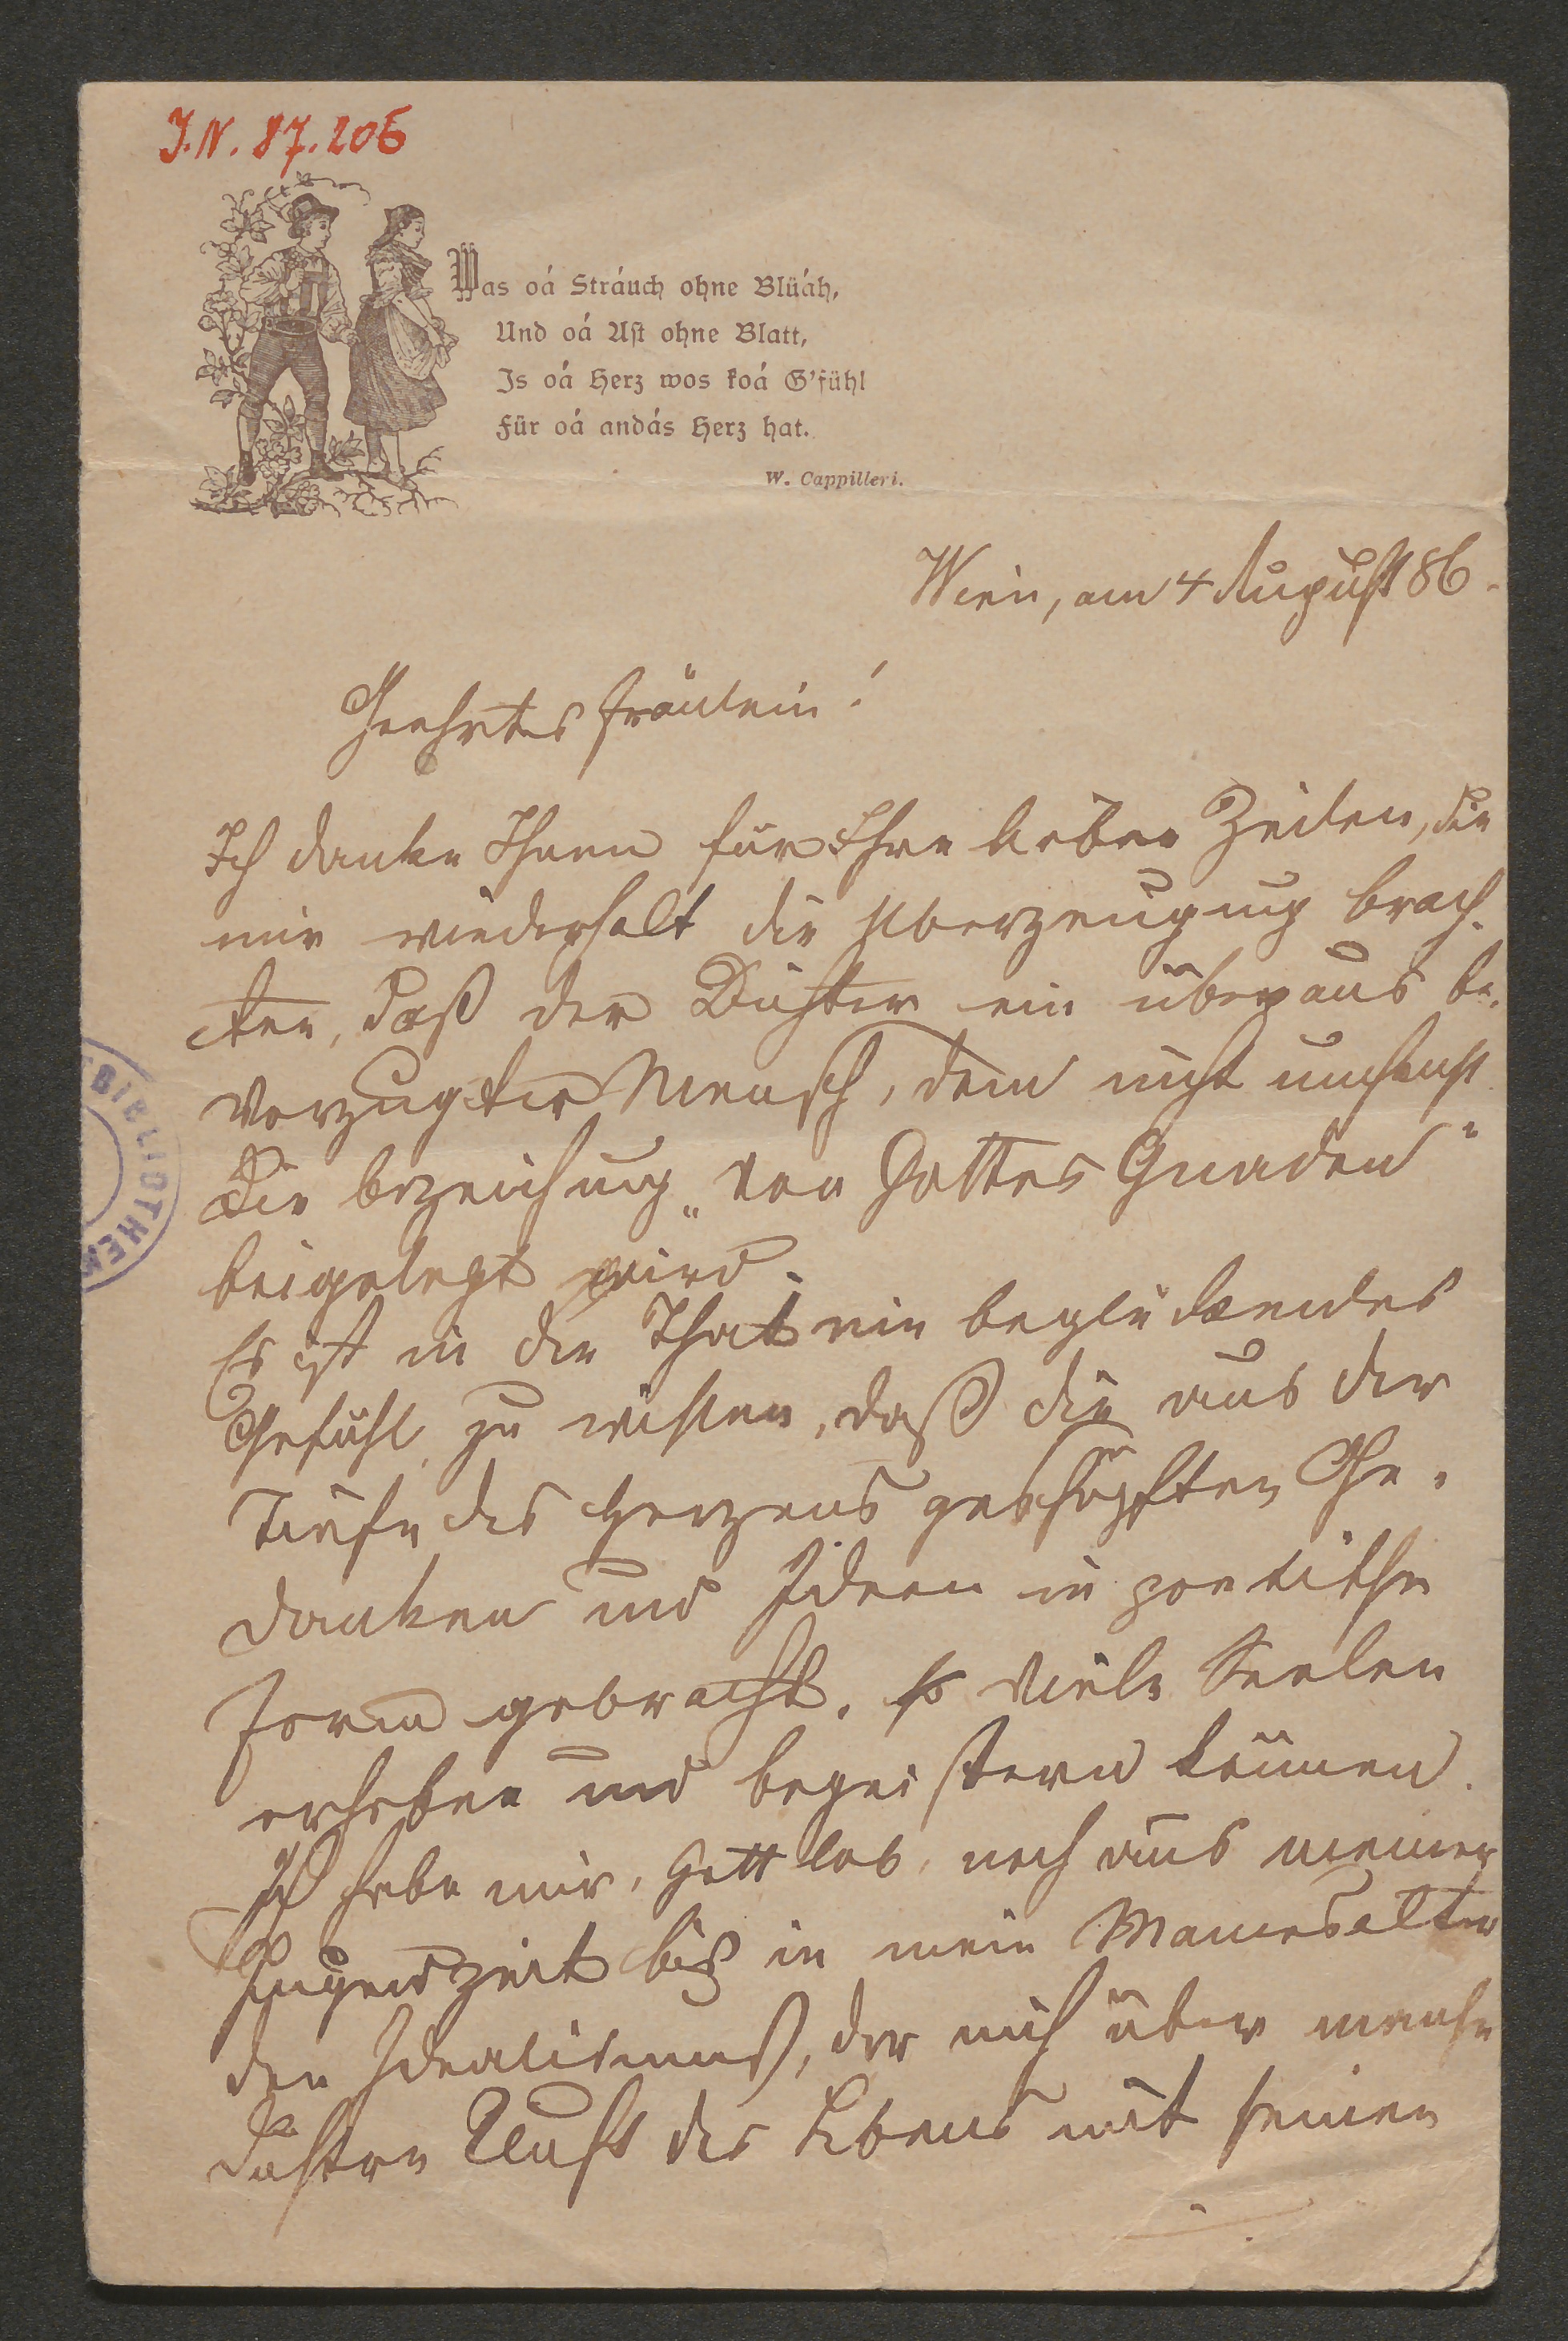 J.N. 87.206
Was oá Stráuch ohne Blüáh,
Und oá Ast ohne Blatt,
Is oá Herz wos koá G'fühl
Für oá andás Herz hat.
W. Cappilleri.
Wien, am 4 August 86.
Geehrtes Fräulein!
Ich danke Ihnen für Ihre lieben Zeilen, die
mir wiederholt die Uberzeugung brach-
ten, daß der Dichter ein überaus be-
vorzugter Mensch, dem nicht umsonst
die bezeichung „von Gottes Gnaden"
beigelegt wird.
Es ist in der That ein beglückendes
Gefühl zu wissen, daß die aus der
Tiefe des Herzens geschöpften Ge-
danken und Ideen in poetische
Form gebracht, so viele Seelen
erheben und begeistern können.
Ich habe mir, Gott lob, noch aus meiner
Jugendzeit bis in mein Mannesalter
den Idealismuß, der mich über manche
düstere Kluft des Lebens mit seinen
BIBLIOTHEK